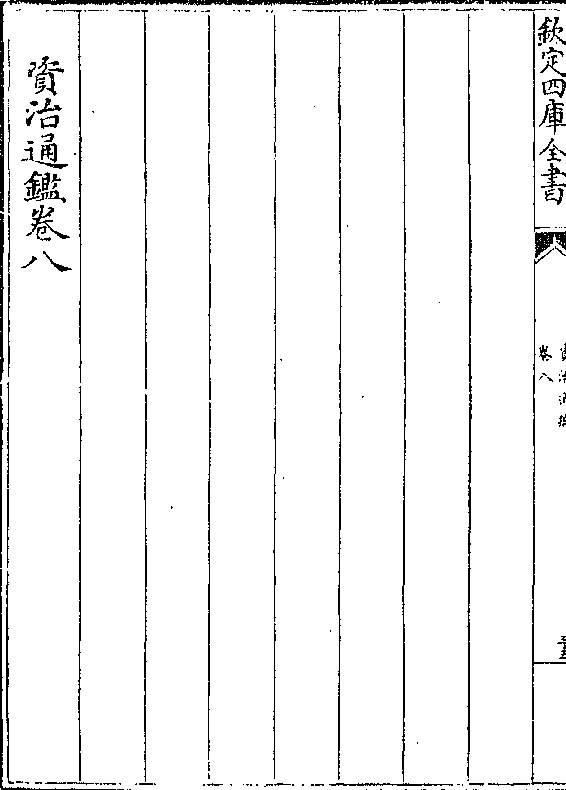 欽定四庫全書
資治通鑑
卷八
資治通鑑卷八